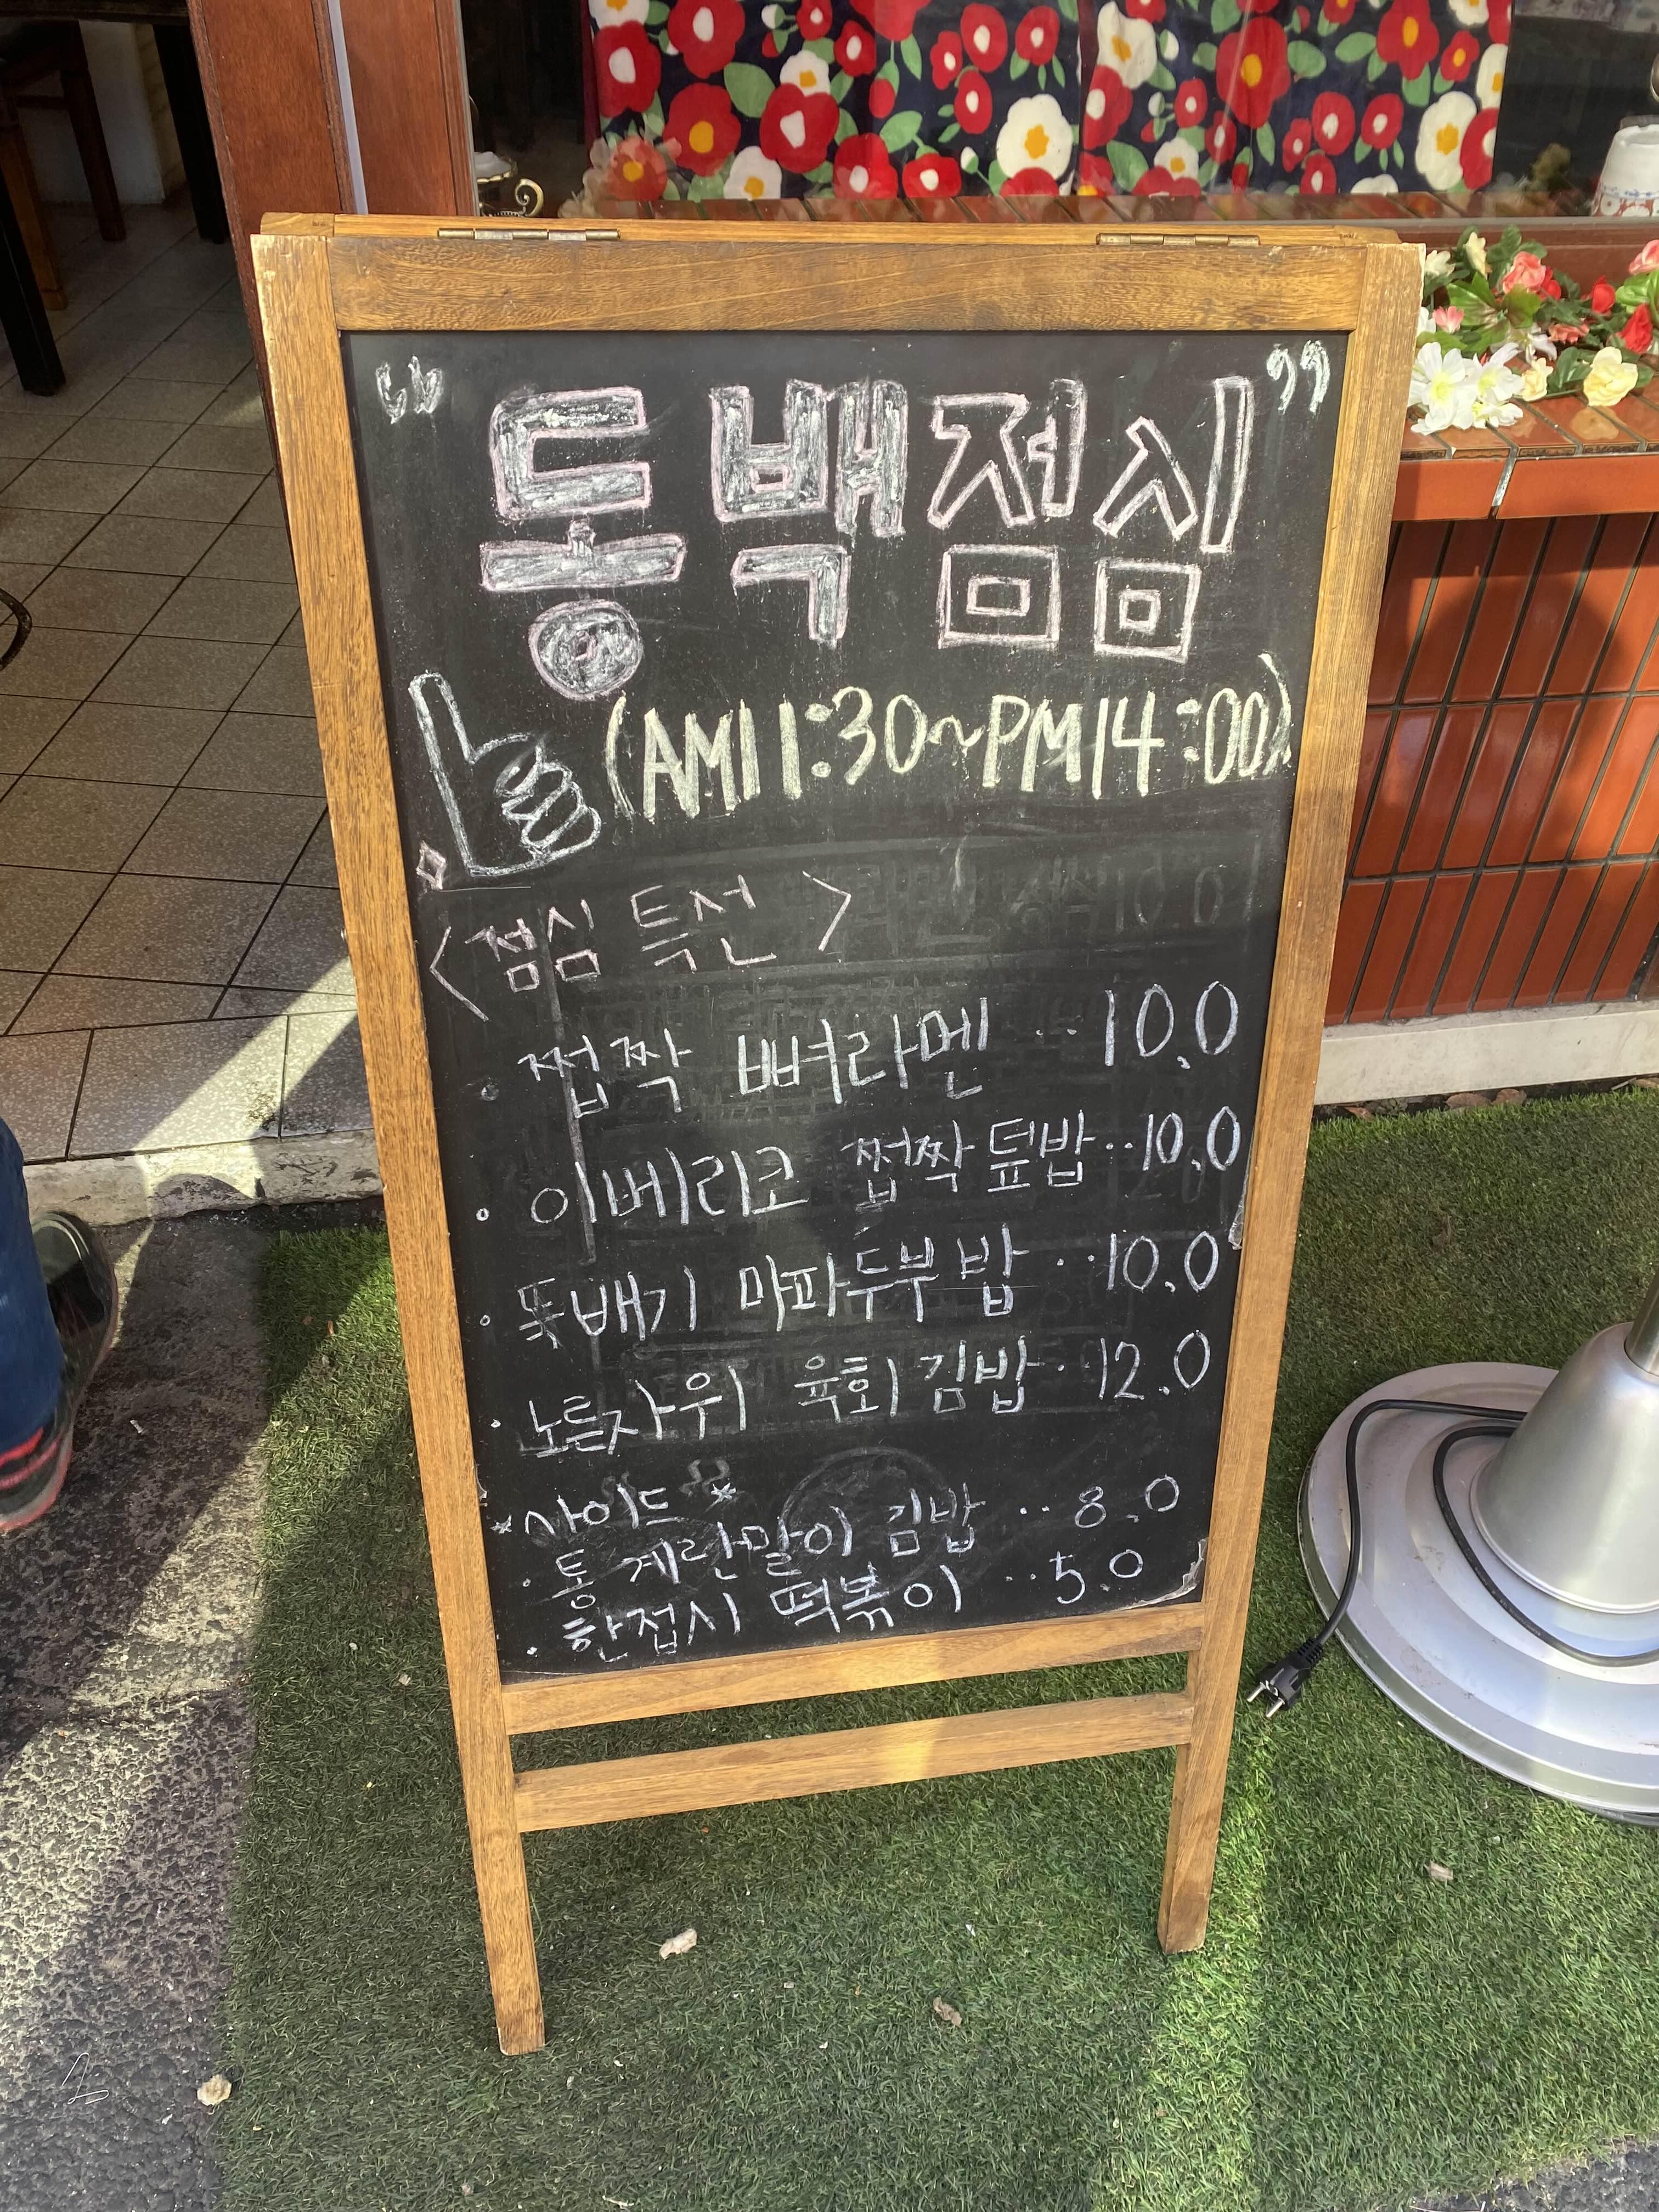 “동백점심”
(AM11:30~PM14:00)
<점심 특선>
· 쩝짝 뼈라멘 ·· 10.0
· 이베리코 쩝짝덮밥 ·· 10.0
· 뚝배기 마파두부밥 ·· 10.0
· 노른자위 육회김밥 ·· 12.0
*사이드*
· 통계란말이 김밥 ·· 8.0
· 한접시 떡볶이 ·· 5.0